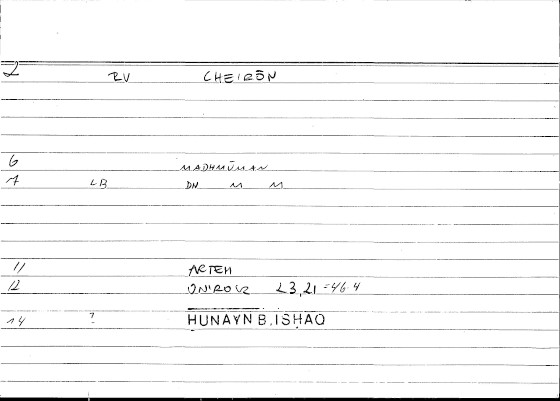 2 RV CHEIRŌN
6 MADHMŪMAN
7 LB DN M M
11 ARTEM
12 ONIROCR 23,21 = 46.4
14 ? HUNAYN B. ISHAQ